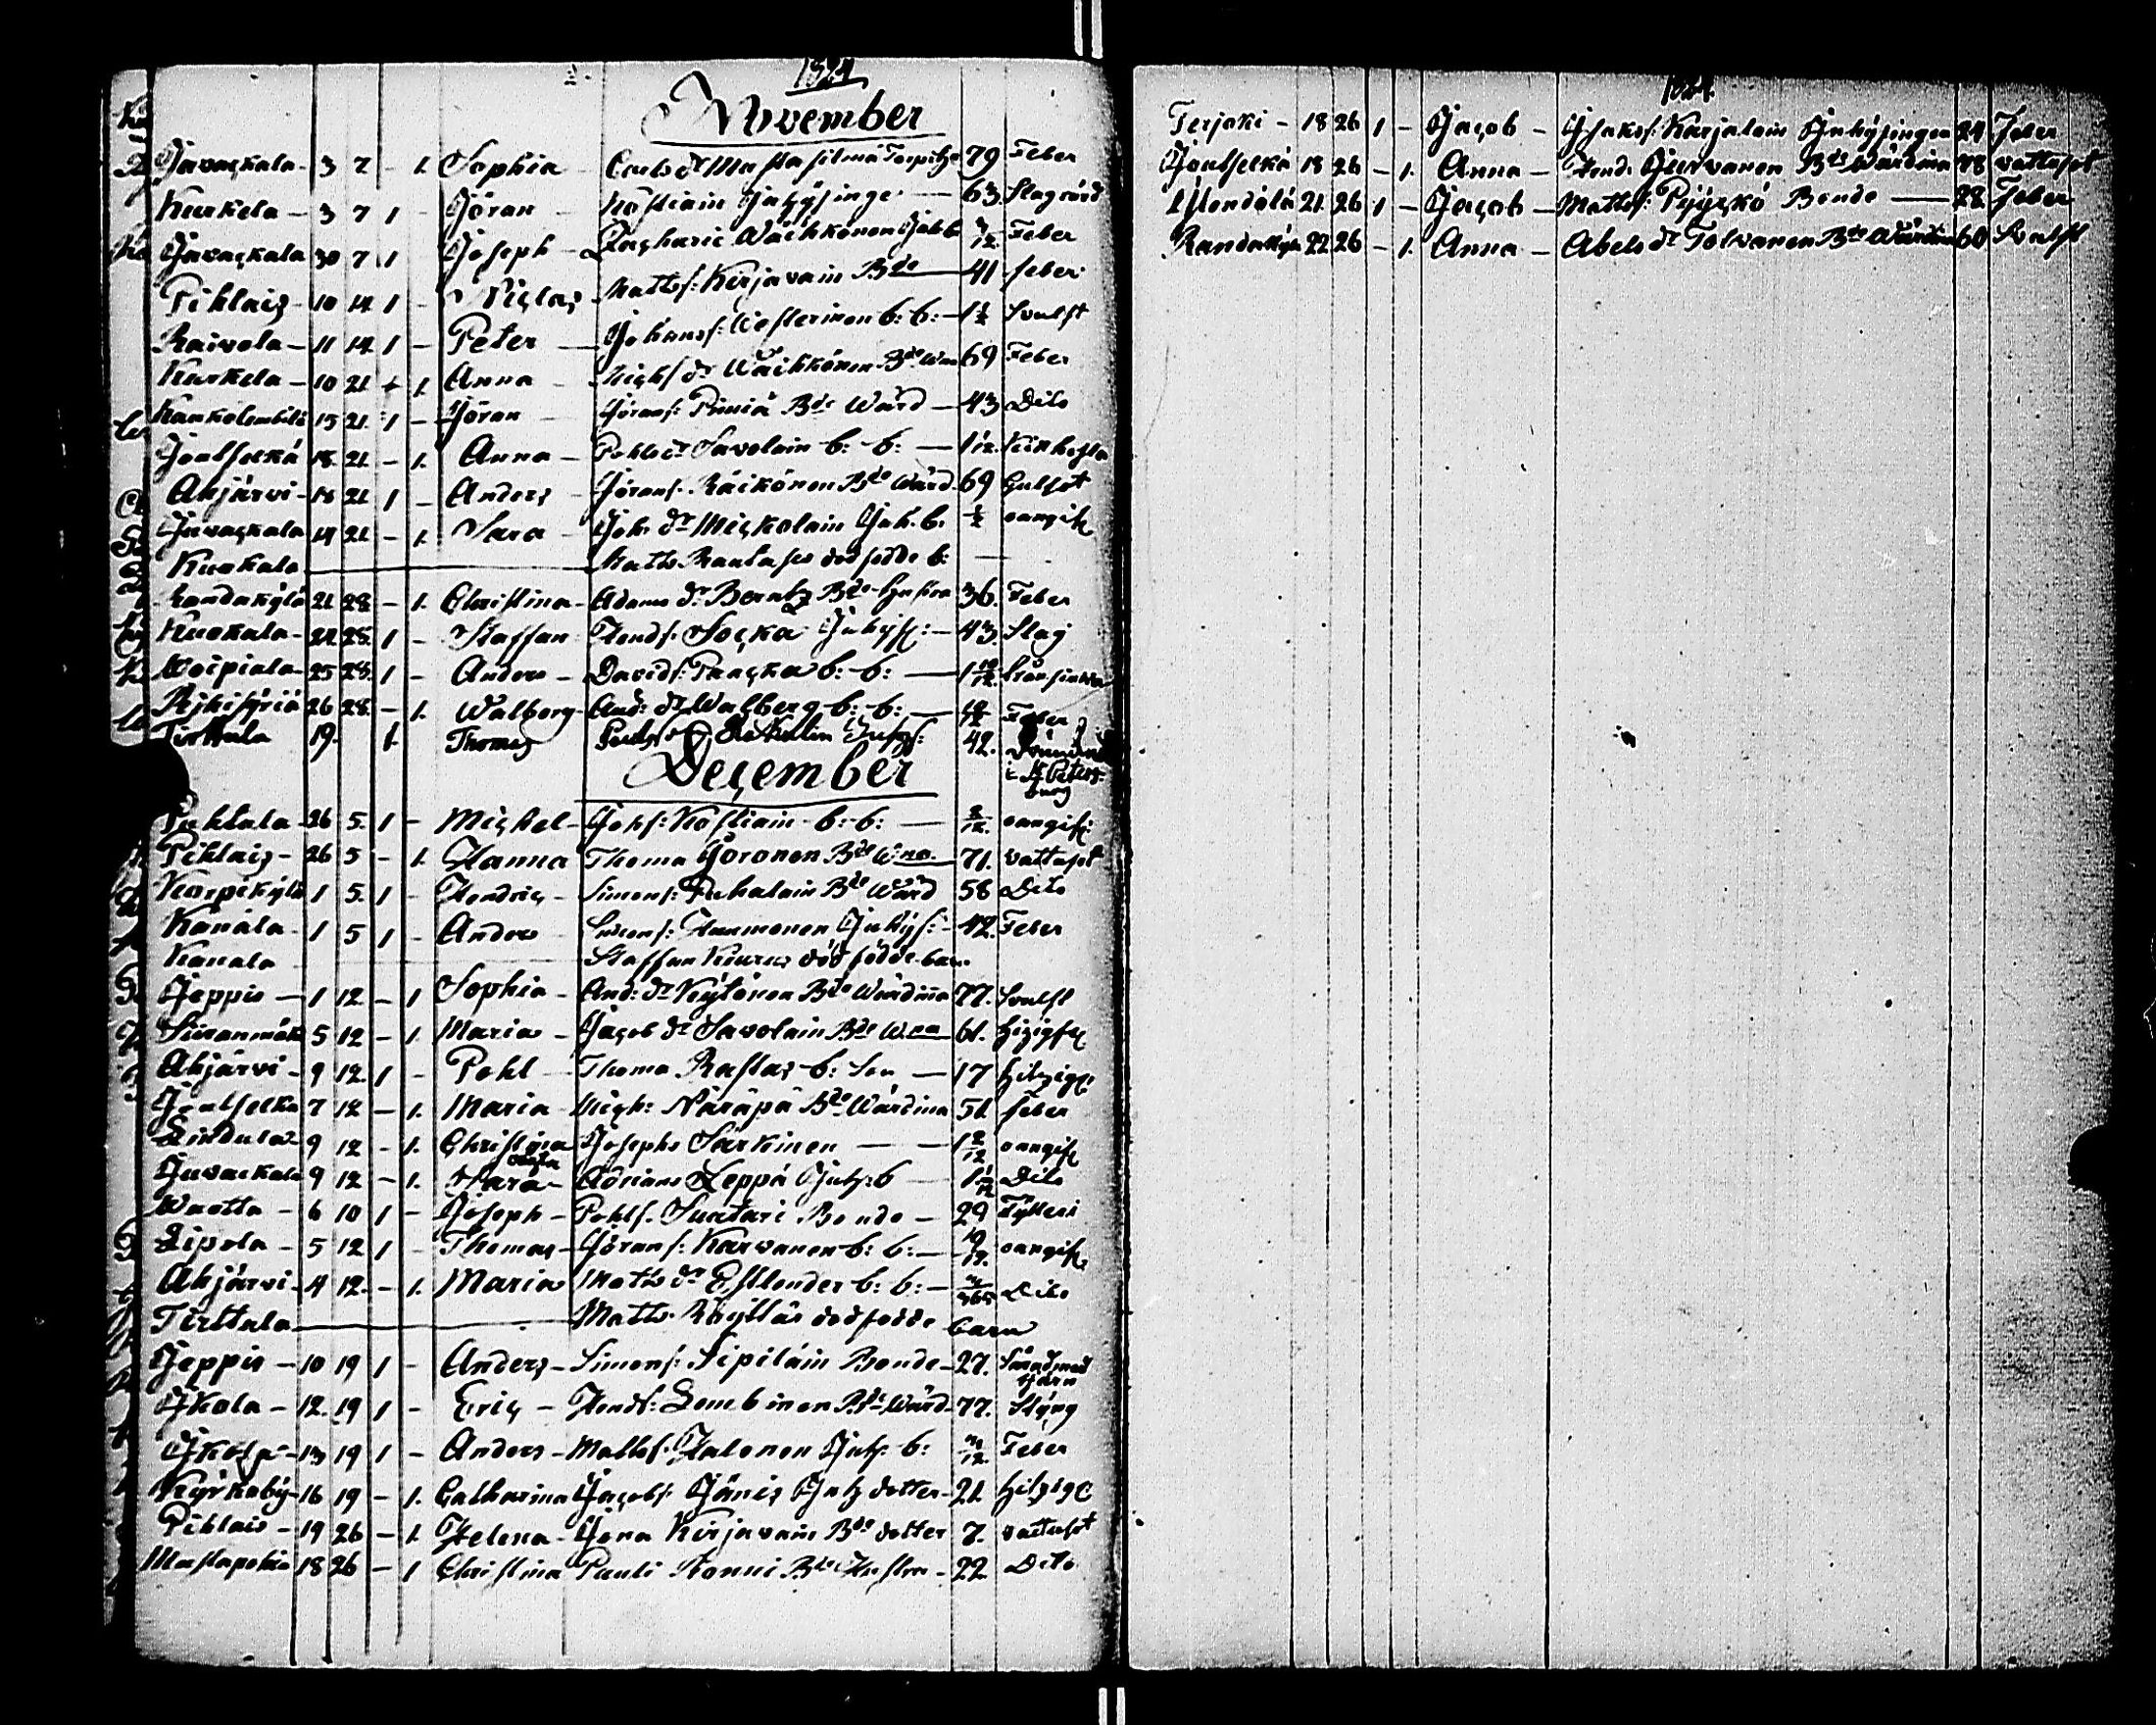 1824
November
Javaskala - 3 7 - 1. Sophia - Carls dr Mustasilmä Torpitze 79 Feber
Kuokela - 3 7 1 - Jöran - Köstiain Inhysinge - 63. Slag
Javaskala 30 7 1 Joseph - Zacharie Wäihkönen Feber
Pihlais - 10 14 1 - Niclas Matts s: Kirjavain Bde 41 feber
Raivola - 11 14 1 - Peter - Johans s: Westerinen b: b: - 1 1/2 Svulst
Kuokela - 10 21 + 1. Anna - Michls dr Wäihkönen Bde 69 Feber
15 21 1 - Jöran - Jörans s: Pimiä Bde Wärd - 43 Dito
Joutselkä 18. 21 - 1. Anna - Pohls dr Savolain b: b: - 1 1/12 Kikhosta
Ahjärvi - 18 21 1 - Anders - Jörans s. Räikönen Bde Wärd. 69 Gulsot
Javaskala 14 21 - 1. Sara - Joh. dr Mickolain Inh. b. 1/2 oangif
Kuokala Matts Rautases död födde b: -
Randakylä 21 28 - 1. Christina - Adams dr Berntz Bde hustru 36. Feber
Kuokala - 22 28. 1 - Staffan Hends. Socka Inhys: - 43. Slag
Woipiala - 25 28. 1 - Anders - Davids s: Paacka b: b: - 1 10/12
26 28. - 1. Walborg - And: dr Walberg b: b: - Feber
Tirttula 19. 1. Thomas 42. i St Peters-
burg
December
Puhtula 26 5. 1 - Michel - Johs: Köstiain b: b: - 8/12. oangif:
Pihlais - 26 5 - 1. Hanna Thoma Joronen Bde W:na. 71. vattusot
Korpikylä 1 5. 1 - Hendric - Simons s: Puhalain Bde Wärd 58 Dito
Kanala - 1 5 1 - Anders - Simons s: Hanmonen Inhys: - 42. Feber
Kanala Staffan död födde barn.
Jeppis - 1 12 - 1 Sophia - And: dr Kytönen Bde Wärdina 77. Svulst
Siiranmäki 5 12 - 1. Maria - Jacob dr Savolain Bde W:na 61. hizigfe
Ahjärvi - 9 12. 1 - Pohl - Thoma Rastas b: son - 17 hitzigf:
Joutselkä 7 12 - 1. Maria - Mich: Näräpä Bde Wärdina 51 feber
Lindula 9 12 - 1. Christina Josephs Särkinen - - 1 2/12 oangif
Javaskala 9 12 - 1. Sara - Adrians Leppä Inhs: b - 1 1/12 Dito
Wuotta - 6 10 1 - Joseph - Pohls s. Suutari Bonde - 29
Lipola - 5 12 1 - Thomas - Jörans s: Karvanen b: b: - 10/12. oangif.
Ahjärvi - 4 12. - 1. Maria Matts dr Estlander b: b: - Dito
Tirttula Matts. död födde barn
Jeppis - 10 19 1 - Anders - Simons s: Sipiläin Bonde - 27.
Ikola - 12. 19 1 - Eric - Hends s: Lembinen Bde Wärd - 77. Styng
Ikola - 13 19 1 - Anders - Matts s. Halonen Inhs: b: Feber
Kyrkoby - 16 19 - 1. Catharina Jacobs s: Jänis Inhs dotter - 21. hitzigf
Pihlais - 19 26 - 1. Helena - Jöra Kirjavain Bde dotter 7. vattusot
Mustapohja 18 26 - 1 Christina Pauli Ronni Bde Hustru - 22 Dito
1824
Terjoki - 18 26 1 - Jacob - Isaks s: Karjalain Inhysingen 24 Feber
Joutselkä 18 26 - 1. Anna - Hend. Jurvanen Bde Wärdina 78 vattusot
21 26 1 - Jacob - Matts s: Pyyckö Bonde - 28. Feber
Randakylä 22 26 - 1. Anna - Abels dr Tolvanen Bde Wärdina 60 Svulst